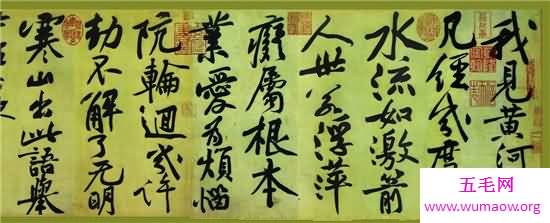 我見黃河
凡經幾度
水流如激箭
人世若浮萍
癡屬根本
業愛為煩惱
阬輪迴幾許
劫不解了无明
寒山出此語舉
五毛网
www.wumaow.org